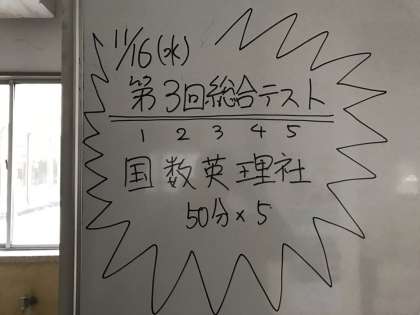 11/16(水)
第3回総合テスト
1 2 3 4 5
国数英理社
50分×5